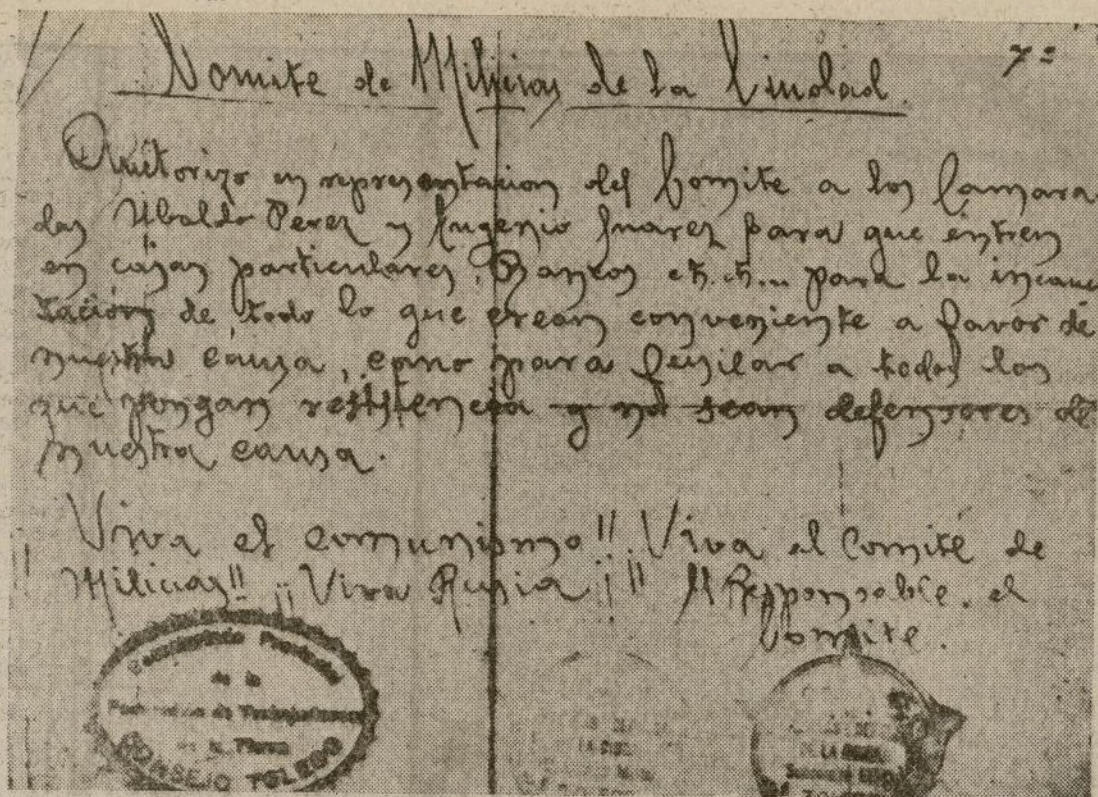 7º
Comite de Milicias de la Ciudad.
Autorizo en representacion del Comite a los Camara
das Ubaldo Perez y Eugenio Juarez para que entren
en casas particulares, Bancos etc. etc... para la incau
tación de todo lo que crean conveniente a favor de
nuestra causa, como para fusilar a todos los
que pongan resistencia y no sean defensores de
nuestra causa.
Viva el comunismo!! Viva el Comité de
Milicias!! ¡¡Viva Rusia¡¡!! El Responsable. el
Comite.
Secretariado Provincial
de la
Federacion de Trabajadores
de la Tierra
CONSEJO TOLEDO
DE LA